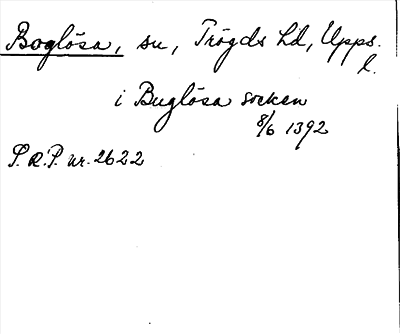 Boglösa, sn, Trögds hd, Upps.
l.
i Buglösa socken
8/6 1392
S.R.P. nr. 2622